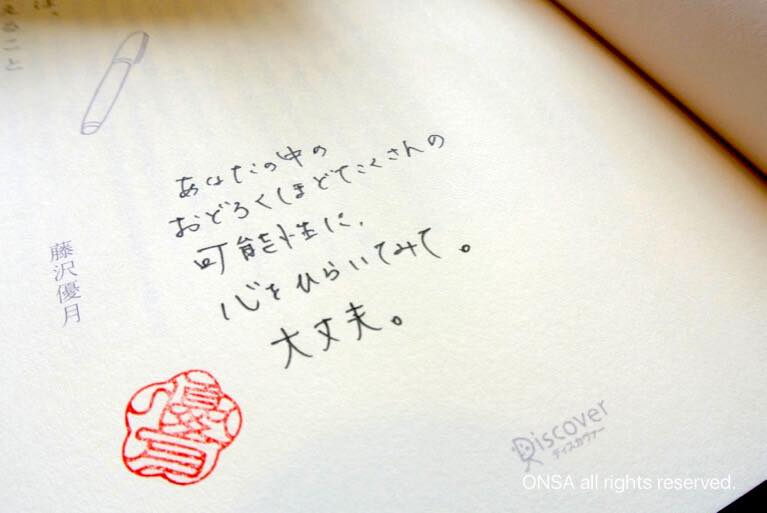 あなたの中の
おどろくほどたくさんの
可能性に、
心をひらいてみて。
大丈夫。
藤沢優月
優月
Discover
ディスカヴァー
ONSA all rights reserved.